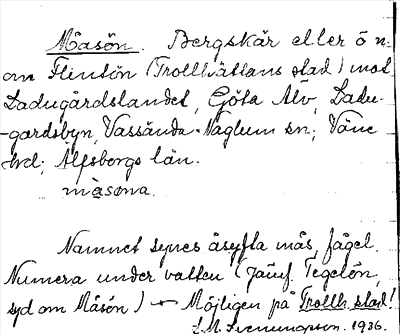 Måsön. Bergskär eller ö n.
om Flintön (Trollhättans stad) mot
Ladugårdslandet, Göta Älv, Ladu-
-gårdsbyn, Vassända-Naglum sn; Väne
hd; Älfsborgs län.
måsøna.
Namnet synes åsyfta mås, fågel.
Numera under vatten (Jämf. Tegelön,
syd om Måsön) ← Möjligen på Trollh. stad!
1936.